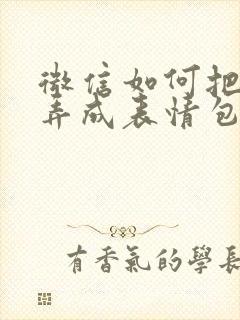 微信如何把
弄成表情包
有香氣的學長